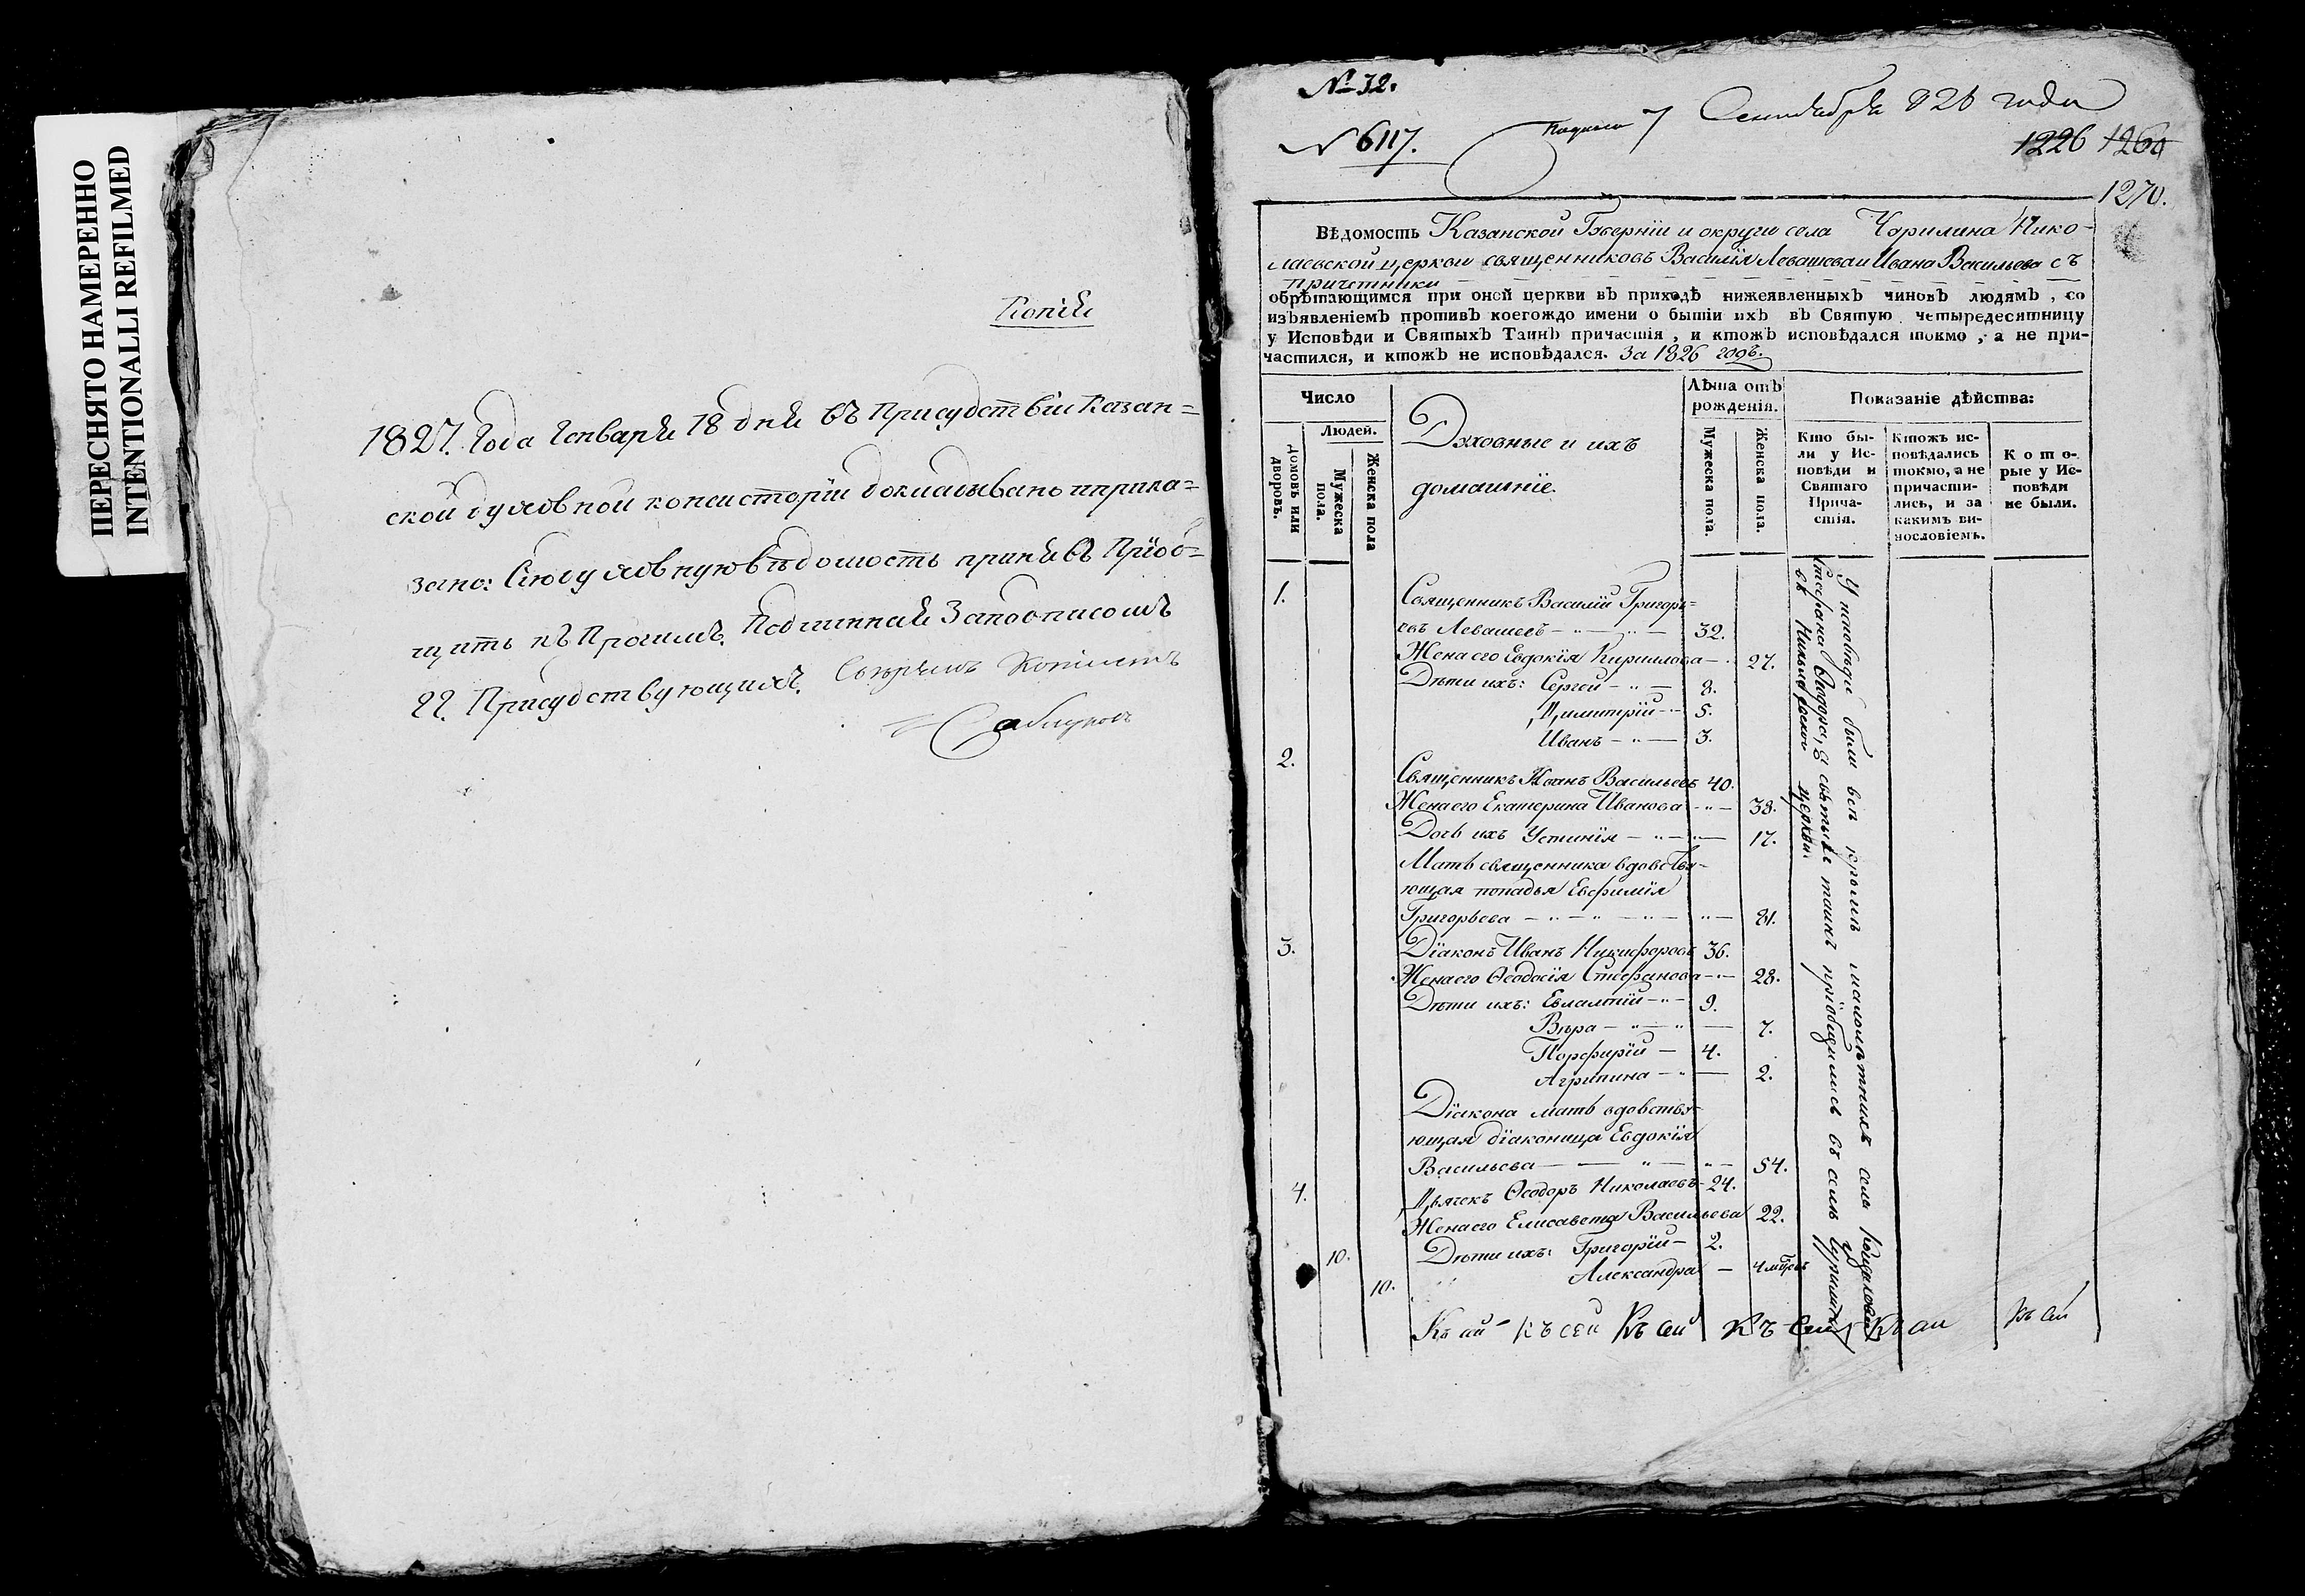 ПЕРЕСНЯТО НАМЕРЕННО
INTENTIONALLI REFILMED
Копія
1827. Года Генваря 18 дня въ Присудствіи Казан=
ской духовной консисторіи докладывано и прика=
зано: Сію духовную вѣдомость принявъ Пріоб=
щить къ Прочимъ. Подлинная За подписомъ
Гг. Присудствующихъ. Копіистъ
№ 32.
№ 6117.
7 Сентября 826 года
1226 1260
1270.
Вѣдомость Казанской Губерніи и округи села Чурилина Нико-
лаевской церкви священниковъ Василія Левашева и Ивана Васильева съ
причетники
обрѣтающимся при оной церкви въ приходѣ нижеявленныхъ чиновъ людямъ, со
изъявленіемъ противъ коегождо имени о бытіи ихъ въ Святую четыредесятницу
у Исповѣди и Святыхъ Таинъ причастія, и ктожъ исповѣдался токмо, а не при-
частился, и ктожъ не исповѣдался. За 1826 годъ.
Число
Людей.
Домовъ или дворовъ.
Мужеска пола.
Женска пола
Духовные и ихъ
домашніе.
Лѣта отъ
рожденія.
Мужеска пола.
Женска пола.
Показаніе дѣйства:
Кто бы-
ли у Ис-
повѣди и
Святаго
Прича-
стія.
Ктожъ ис-
повѣдались
токмо, а не
причасти-
лись, и за
какимъ ви-
нословіемъ.
Кото-
рые у Ис-
повѣди
не были.
1. Священникъ Василій Григорь=
евъ Левашевъ 32.
Жена его Евдокія Кириллова 27.
Дѣти ихъ: Сергей 8.
Димитрій 5.
Иванъ 3.
2. Священникъ Иванъ Васильевъ 40.
Жена его Екатерина Иванова 38.
Дочь ихъ Устинія 17.
Мать священника вдовству-
ющая попадья Евфимія
Григорьева 81.
3. Діаконъ Иванъ Никифоровъ 36.
Жена его Ѳеодосія Стефанова 28.
Дѣти ихъ: Евлампій 9.
Вѣра 7.
Порфирій 4.
Агрипина 2.
Діакона мать вдовству-
ющая діаконица Евдокія
Васильева 54.
4. Дьячекъ Ѳеодоръ Николаевъ 24.
Жена его Елисавета Васильева 22.
10. Дѣти ихъ: Григорій 2.
10. Александра
У исповѣди были всѣ кромѣ малолѣтнихъ села
Стефана Ѳедорова, а святыхъ таинъ пріобщились въ селѣ
въ церкви.
Къ сей Къ сей Къ сей Къ сей Къ сей Къ сей